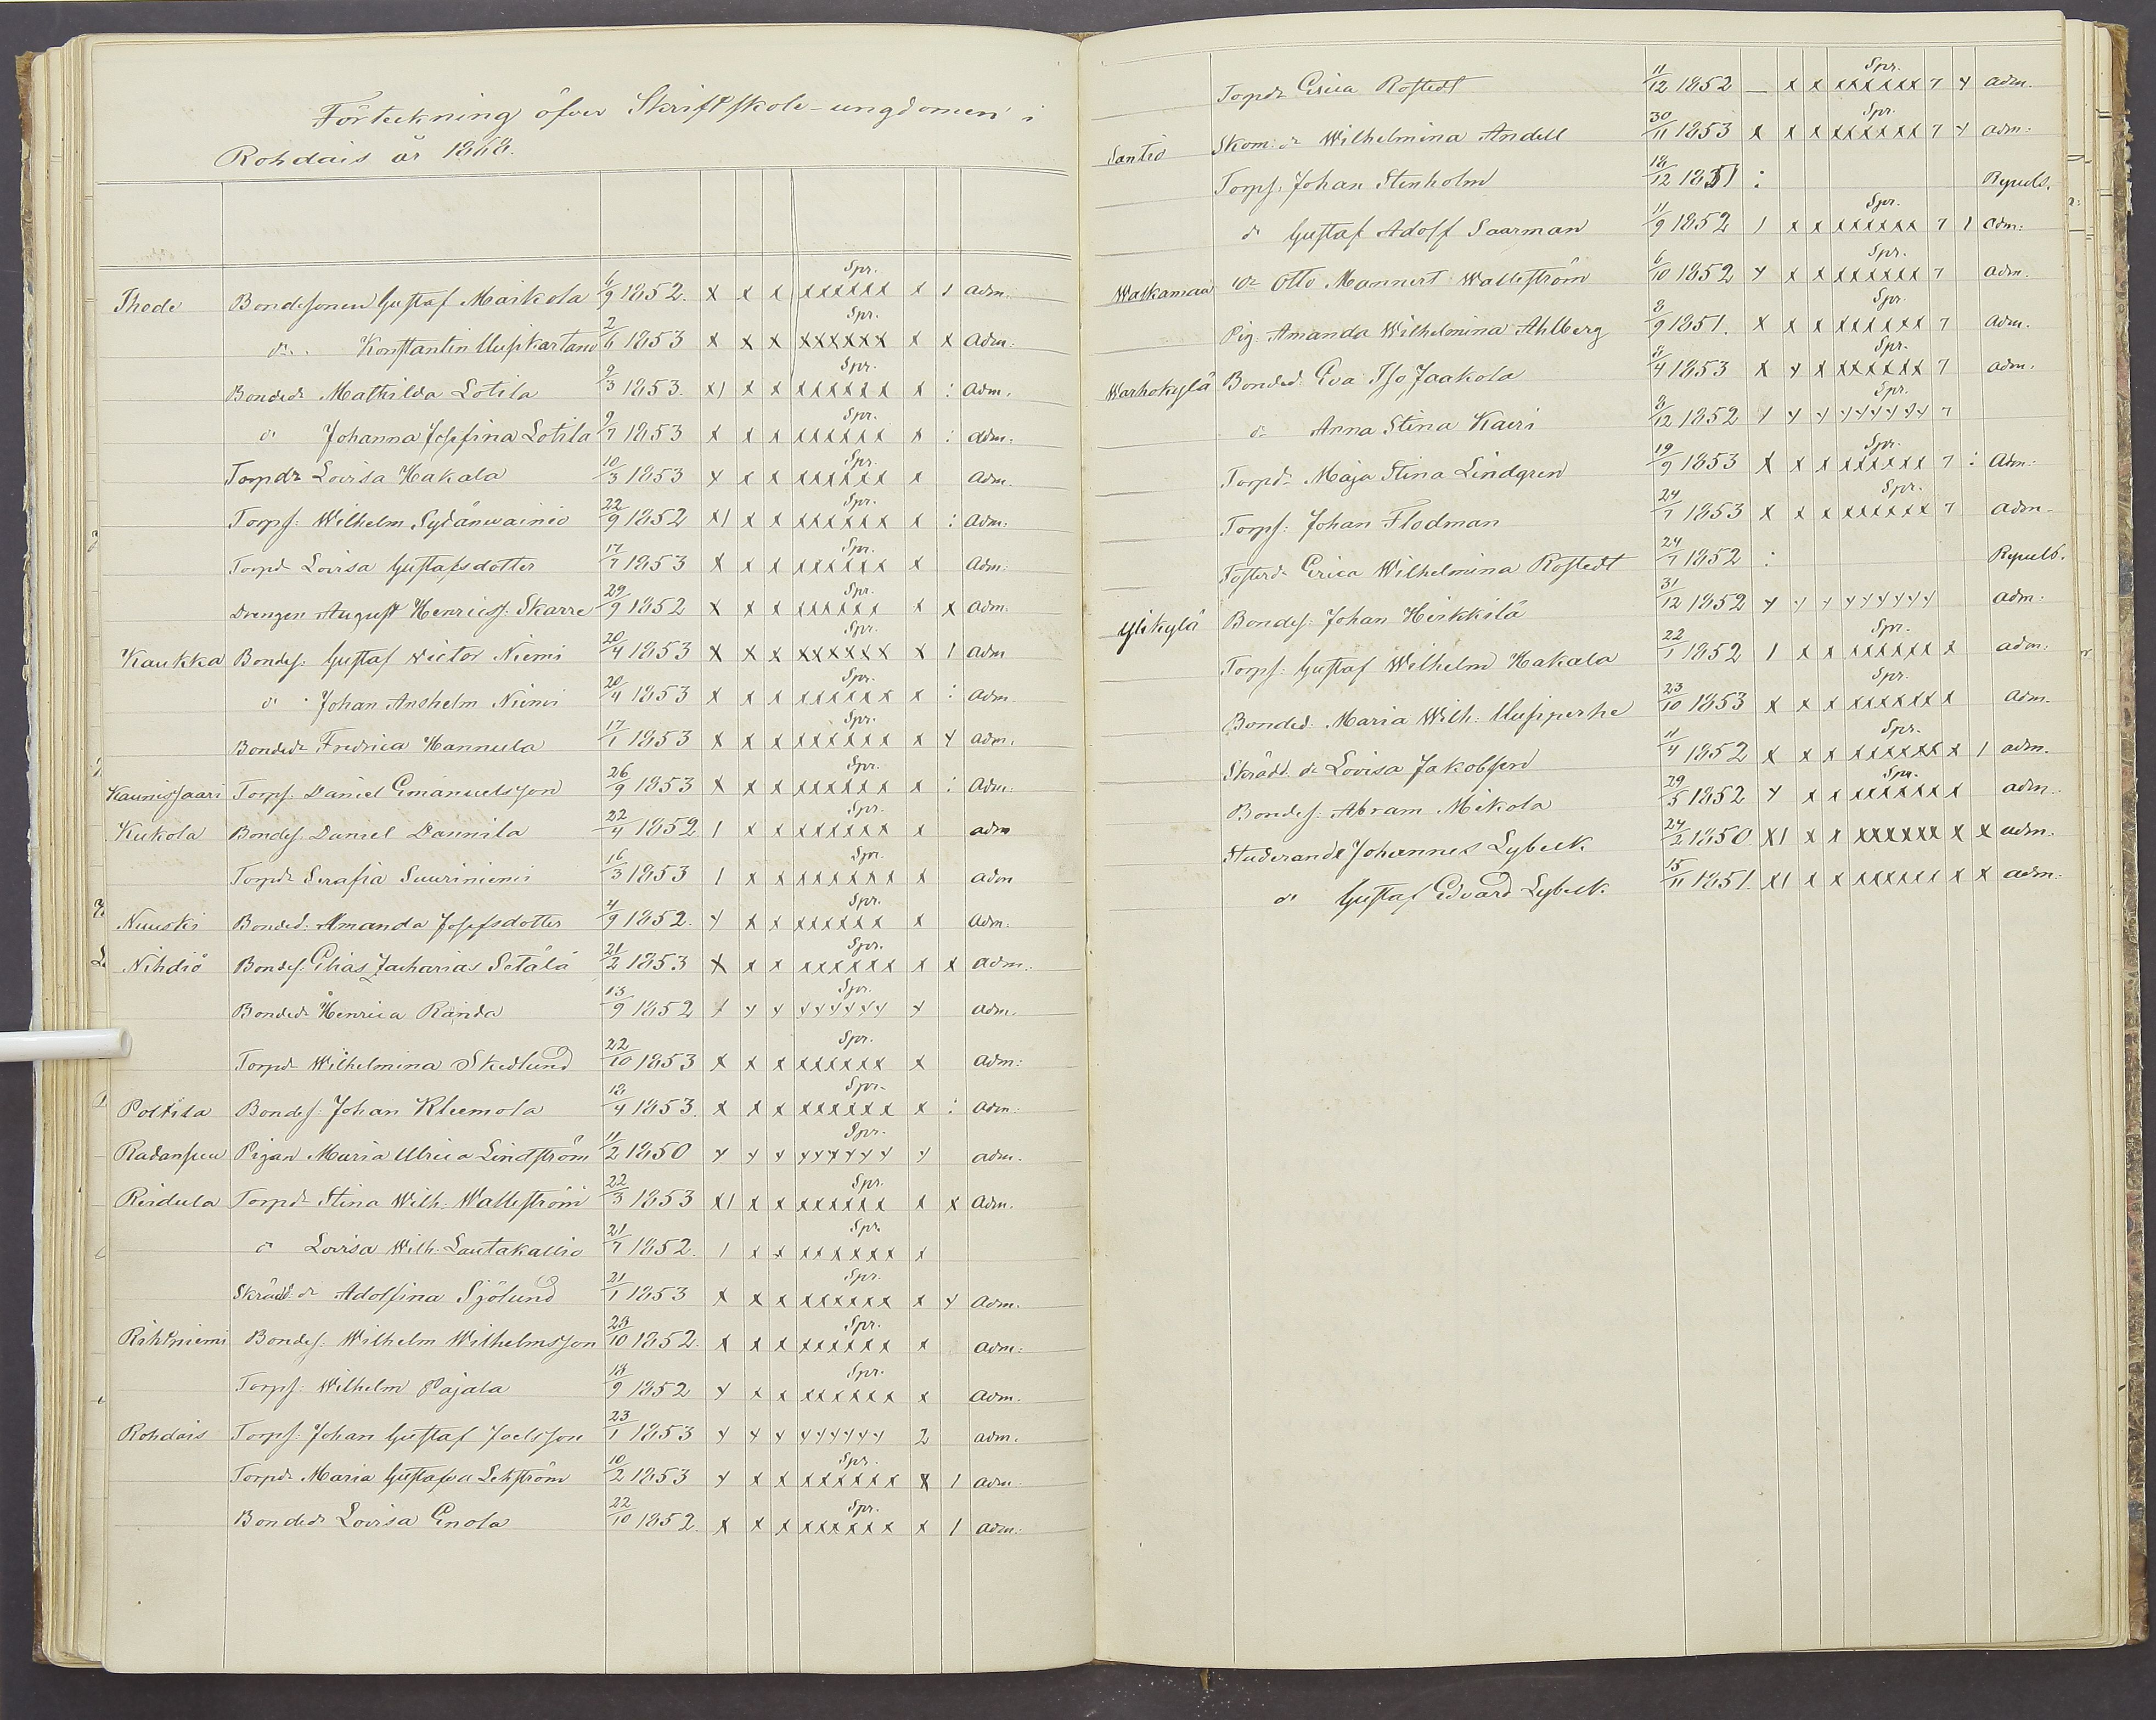 Förteckning öfver Skriftskole-ungdomen i
Rohdais år 1868.
Thode Bondesonen Gustaf Maikola 6/9 1852. x x x Spr. xxxxxx x 1 adm.
do Konstantin Uusikartano 2/6 1853 x x x Spr. xxxxxx x x adm.
Bonded. Mathilda Lotila 9/3 1853. x1 x x Spr. xxxxxx x : adm.
do Johanna Josefina Lotila 9/7 1853 x x x Spr. xxxxxx x : adm.
Torpdr Lovisa Hakala 10/3 1853 x x x Spr. xxxxxx x adm.
Torps. Wilhelm Sydänwainio 22/9 1852 x1 x x Spr. xxxxxx x : adm.
Torpd. Lovisa Gustafsdotter 17/7 1853 x x x Spr. xxxxxx x adm.
Drengen August Henricss. Skarre 29/9 1852 x x x Spr. xxxxxx x x adm.
Kaukka Bondes. Gustaf Victor Niemi 20/4 1853 x x x Spr. xxxxxx x 1 adm
do Johan Anshelm Niemi 20/4 1853 x x x Spr. xxxxxx x : adm.
Bondedr Fredrica Hannula 17/1 1853 x x x Spr. xxxxxx x x adm.
Kaunissaari Torps. Daniel Emanuelsson 26/9 1853 x x x Spr. xxxxxx x : adm.
Kukola Bondes. Daniel Dannila 22/4 1852 1 x x Spr. xxxxxx x adm
Torpdr Serafia Suuriniemi 16/3 1853 1 x x Spr. xxxxxx x adm
Niuski Bonded. Amanda Josefsdotter 4/9 1852. x x x Spr. xxxxxx x adm.
Nihdiö Bondes. Elias Zacharias Setälä 21/2 1853 x x x Spr. xxxxxx x x adm.
Bondedr Henrica Randa 13/9 1852 x x x Spr. xxxxxx x adm.
Torpdr Wilhelmina Skedlund 22/10 1853 x x x Spr. xxxxxx x adm.
Poitila Bondes. Johan Kleemola 12/4 1853 x x x Spr. xxxxxx x : adm.
Radansuu Pigan Maria Ulrica Lindström 11/2 1850 x x x Spr. xxxxxx x adm.
Reidula Torpd. Stina Wilh. Wallström 22/3 1853 x1 x x Spr. xxxxxx x x adm.
do Lovisa Wilh. Lautakallio 21/7 1852. 1 x x Spr. xxxxxx x
Skrädd. dr Adolfina Sjölund 21/1 1853 x x x Spr. xxxxxx x x adm.
Rihtniemi Bondes. Wilhelm Wilhelmsson 23/10 1852. x x x Spr. xxxxxx x adm.
Torps. Wilhelm Pajala 18/9 1852 x x x Spr. xxxxxx x adm.
Rohdais Torps. Johan Gustaf Joelsson 23/1 1853 x x x xxxxxx 2 adm.
Torpdr Maria Gustafva Lekström 10/2 1853 x x x Spr. xxxxxx x 1 adm.
Bondedr Lovisa Enola 22/10 1852. x x x Spr. xxxxxx x 1 adm.
Torpdr Erica Rostedt 11/12 1852 — x x Spr. xxxxxx 7 x adm.
Santio Skom. dr Wilhelmina Andell 30/11 1853 x x x Spr. xxxxxx 7 x adm.
Torps. Johan Stenholm 18/12 1851 : Repuls.
do Gustaf Adolf Saarman 11/9 1852 1 x x Spr. xxxxxx 7 1 adm.
Walkamaa do Otto Mannert Wallström 6/10 1852 x x x Spr. xxxxxx 7 adm.
Pig. Amanda Wilhelmina Ahlberg 8/9 1851. x x x Spr. xxxxxx 7 adm.
Warhokylä Bonded. Eva Iso Jaakola 5/4 1853 x x x Spr. xxxxxx 7 adm.
do Anna Stina Kairi 8/12 1852 x x x Spr. xxxxxx 7
Torpdr Maja Stina Lindgren 19/9 1853 x x x Spr. xxxxxx 7 : adm.
Torps. Johan Flodman 24/7 1853 x x x Spr. xxxxxx 7 adm.
Fosterdr Erica Wilhelmina Rostedt 24/7 1852 : Repuls.
Ylikylä Bondes. Johan Heikkilä 31/12 1852 x x x xxxxxx adm.
Torps. Gustaf Wilhelm Hakala 22/1 1852 1 x x Spr. xxxxxx x adm.
Bonded. Maria Wilh. Uusiperhe 23/10 1853 x x x Spr. xxxxxx x adm.
Skrädd. dr Lovisa Jakobsson 11/4 1852 x x x Spr. xxxxxx x 1 adm.
Bondes. Abram Mikola 29/5 1852 x x x Spr. xxxxxx x adm.
Studerande Johannes Lybeck 24/2 1850 x1 x x xxxxxx x x adm.
do Gustaf Edvard Lybeck 15/11 1851. x1 x x xxxxxx x x adm.